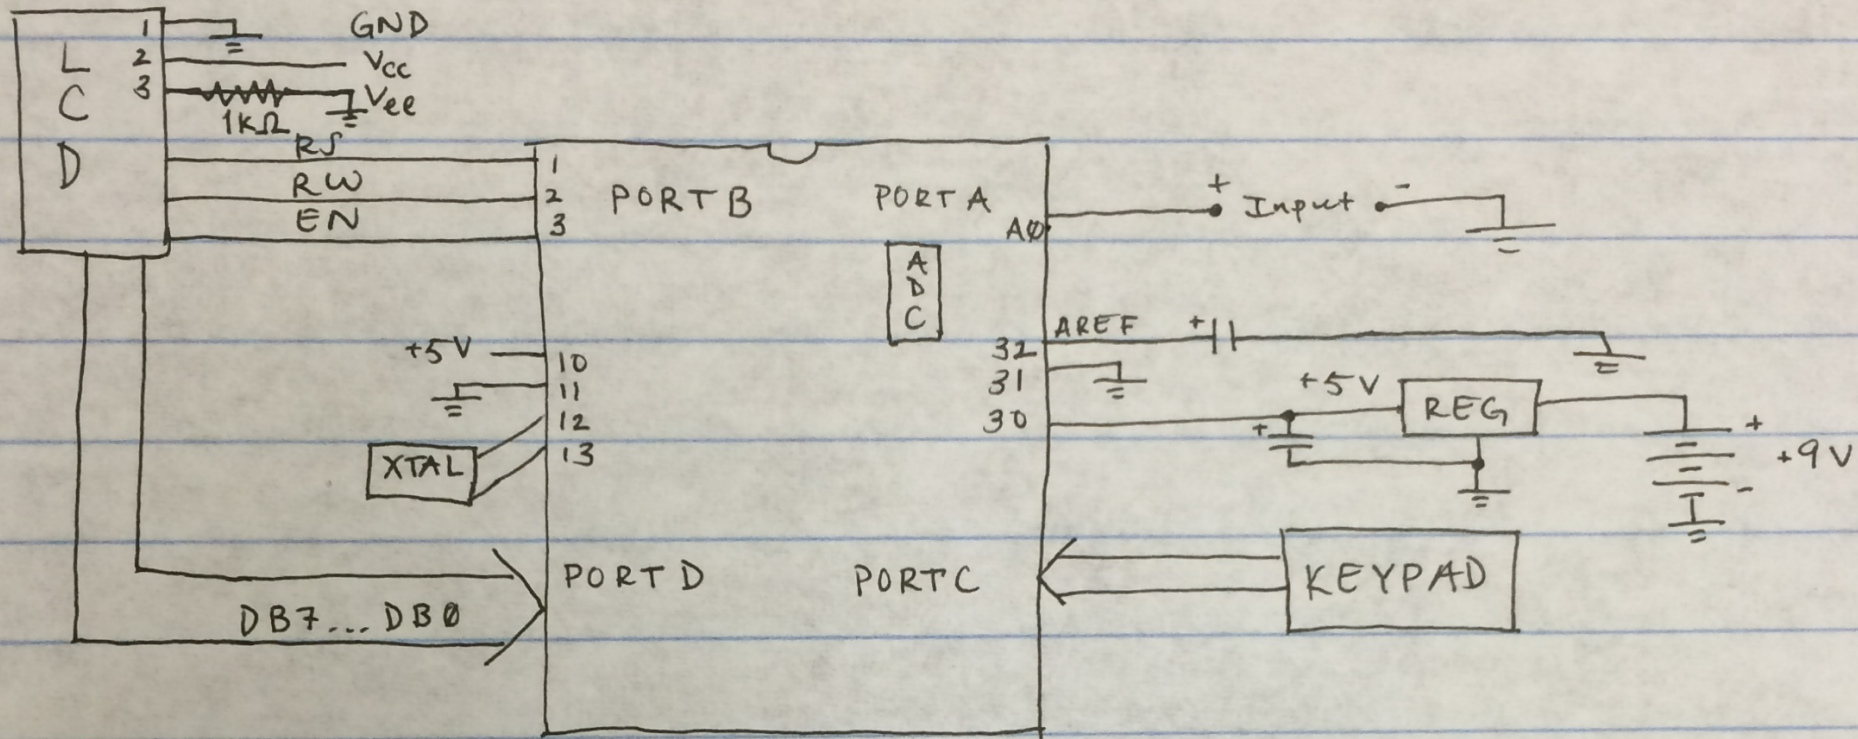 LCD
1 GND
2 Vcc
3 Vee
1KΩ
RS
RW
EN
1
2
3
PORT B
PORT A
AØ
+ Input -
ADC
AREF +
32
31
30
+5V
REG
+
+
+9V
-
+5V
10
11
12
13
XTAL
PORT D
PORT C
KEYPAD
DB7...DBØ